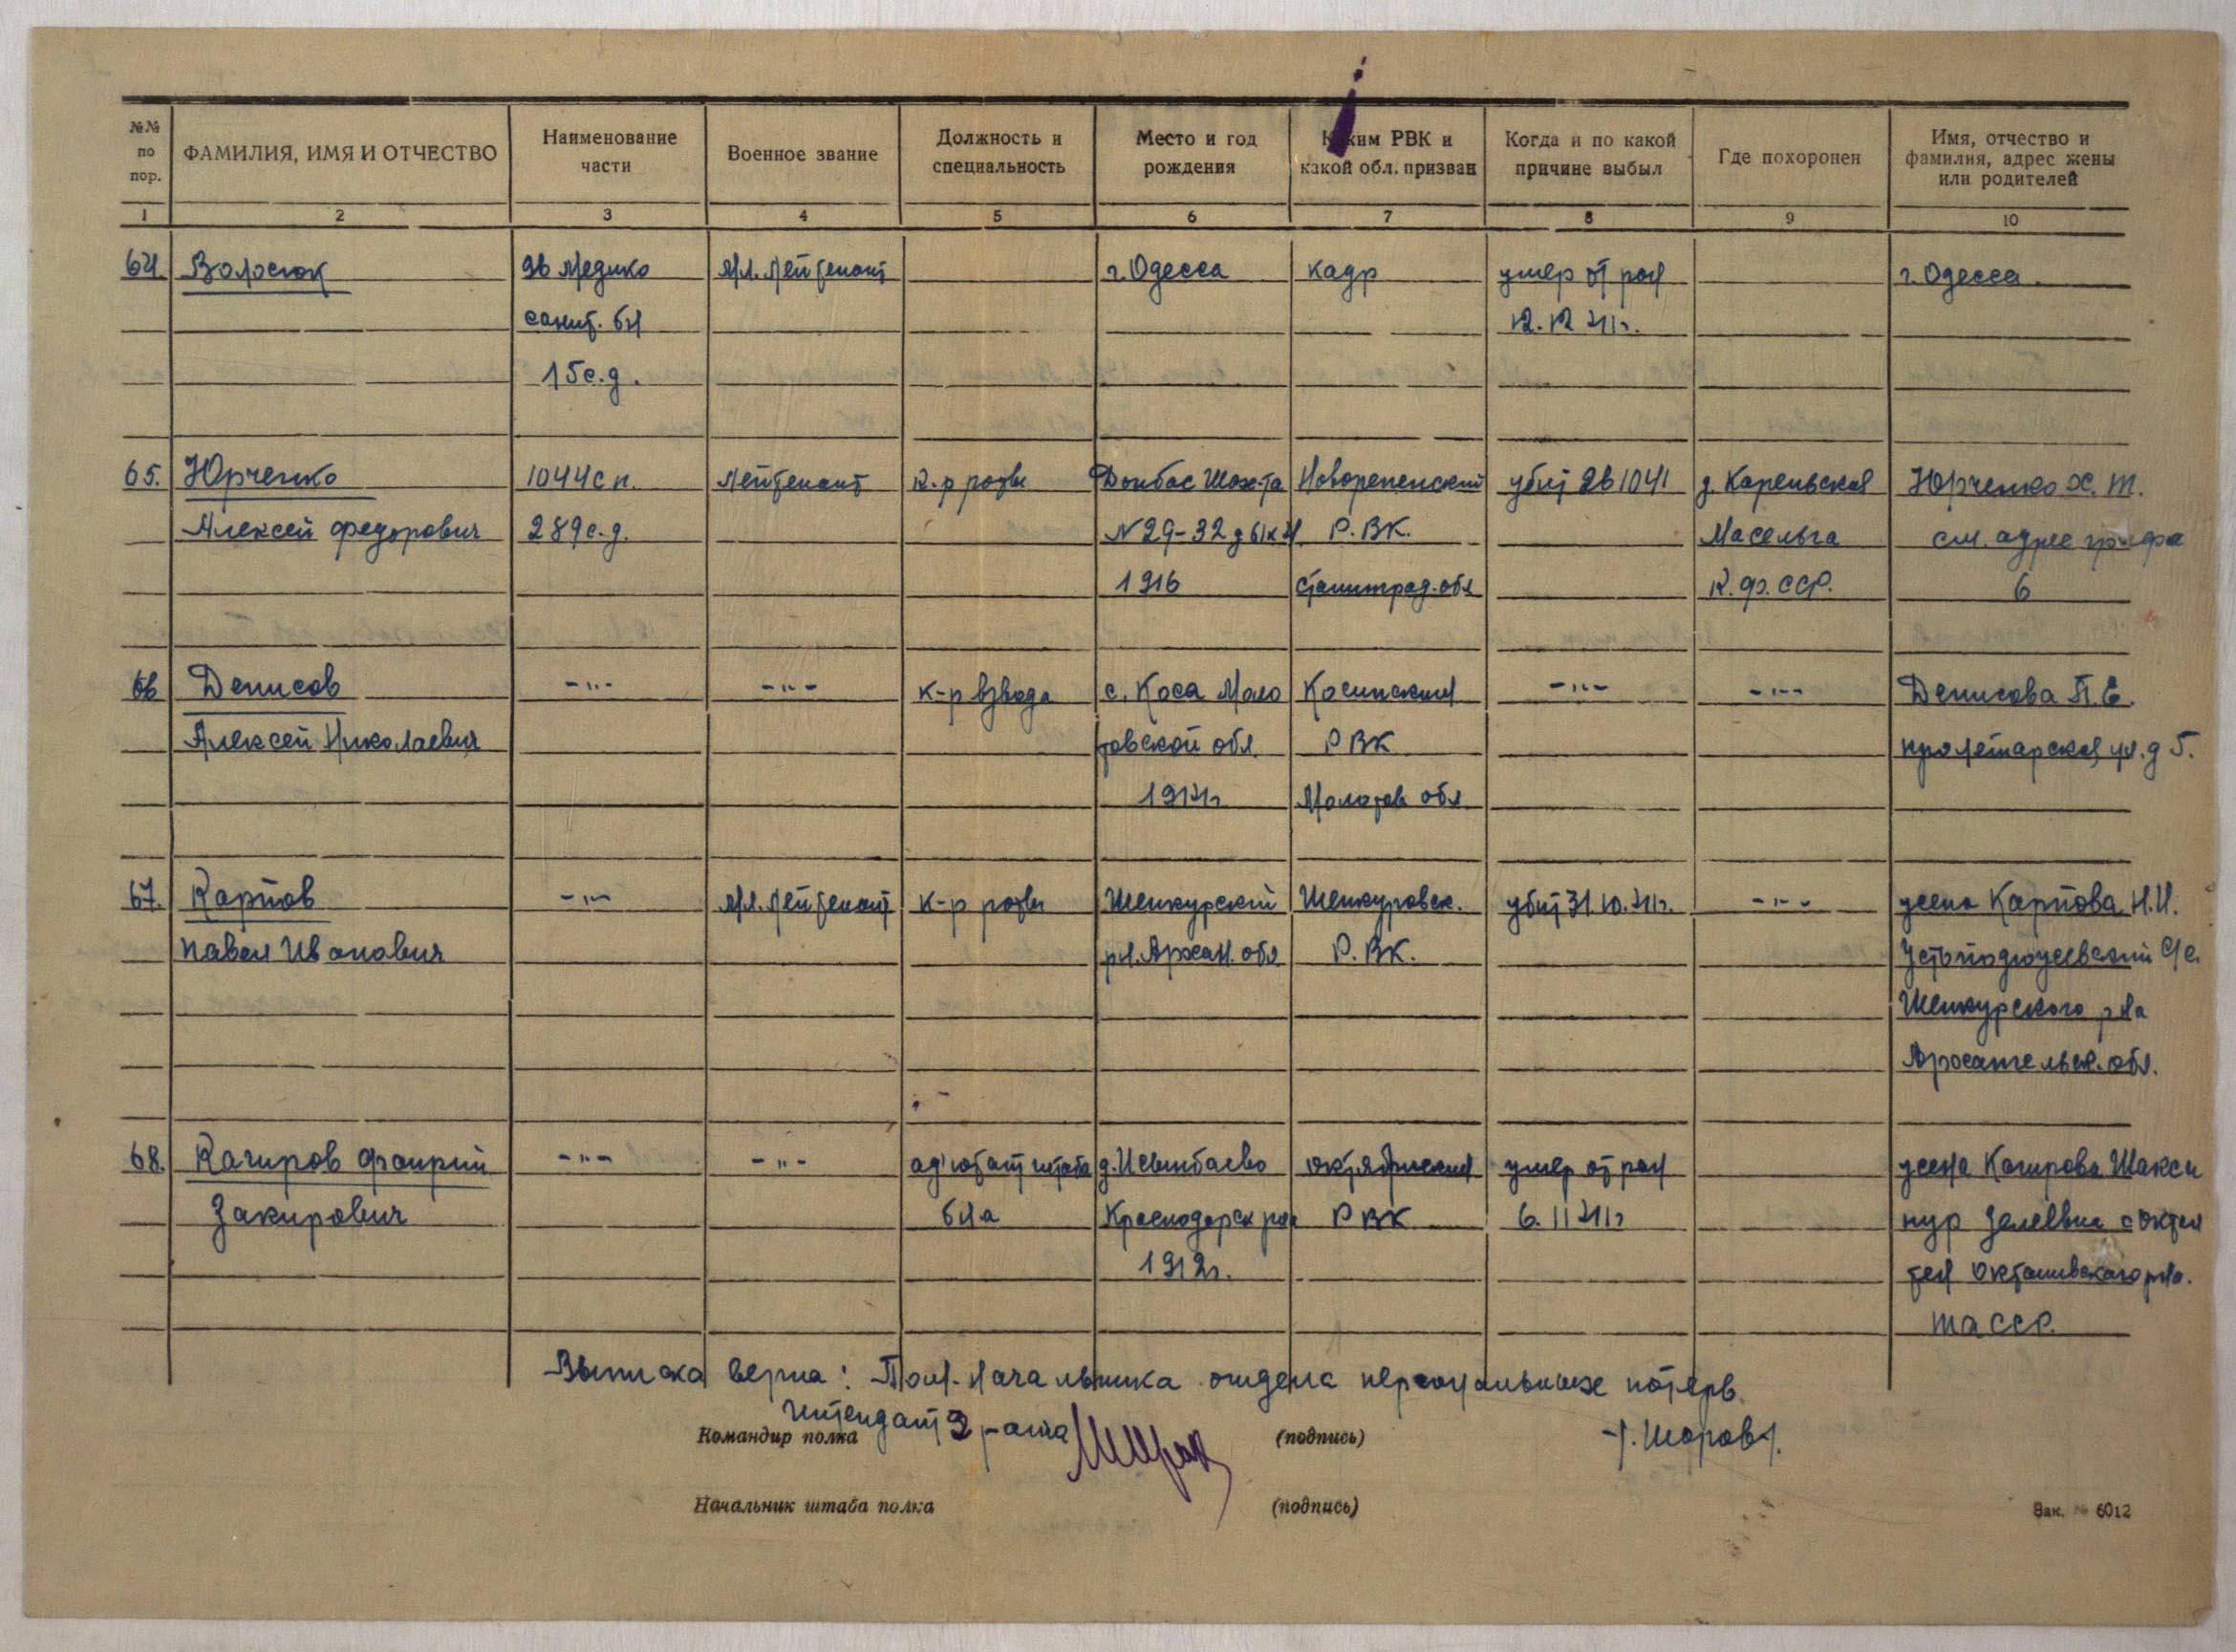 №№ по пор.
ФАМИЛИЯ, ИМЯ И ОТЧЕСТВО
Наименование части
Военное звание
Должность и специальность
Место и год рождения
Каким РВК и какой обл. призван
Когда и по какой причине выбыл
Где похоронен
Имя, отчество и фамилия, адрес жены или родителей
1 2 3 4 5 6 7 8 9 10
64. Волосюк 96 медико мл. лейтенант г. Одесса кадр умер от ран г. Одесса
санит. бн 12.12 41г.
15 с.д.
65. Юрченко 1044 с п. лейтенант к-р роты Донбас Шахта Новорепенский убит 26 10 41 д. Карельская Юрченко Х. Т.
Алексей Федорович 289 с.д. № 29-32 Р. ВК. Масельга см. адрес графа
1916 Сталинград. обл К. Ф. ССР. 6
66 Денисов -"- -"- к-р взвода с. Коса Моло Косинский -"- -"- Денисова П. Е.
Алексей Николаевич товской обл. РВК пролетарская ул. д 5.
1914г Молотов обл
67. Карпов -"- мл. лейтенант к-р роты Шенкурский Шенкуровск. убит 31.10.41г. -"- жена Карпова Н.И.
Павел Иванович р-н. Архан. обл Р. ВК. с/с.
Шенкурского р-на
Архангельск. обл.
68. Качиров -"- -"- ад'ютант штаба д. Исынбаево октябрьский умер от ран жена
Закирович б-на Краснодарск р-на РВК 6. 11 41г
1912г. р-на.
ТАССР.
Выписка верна: Пом. Начальника отдела персональных потерь.
Интендант 2 ранга
Командир полка (подпись) /. Шаров /.
Начальник штаба полка (подпись)
Зак. № 6012